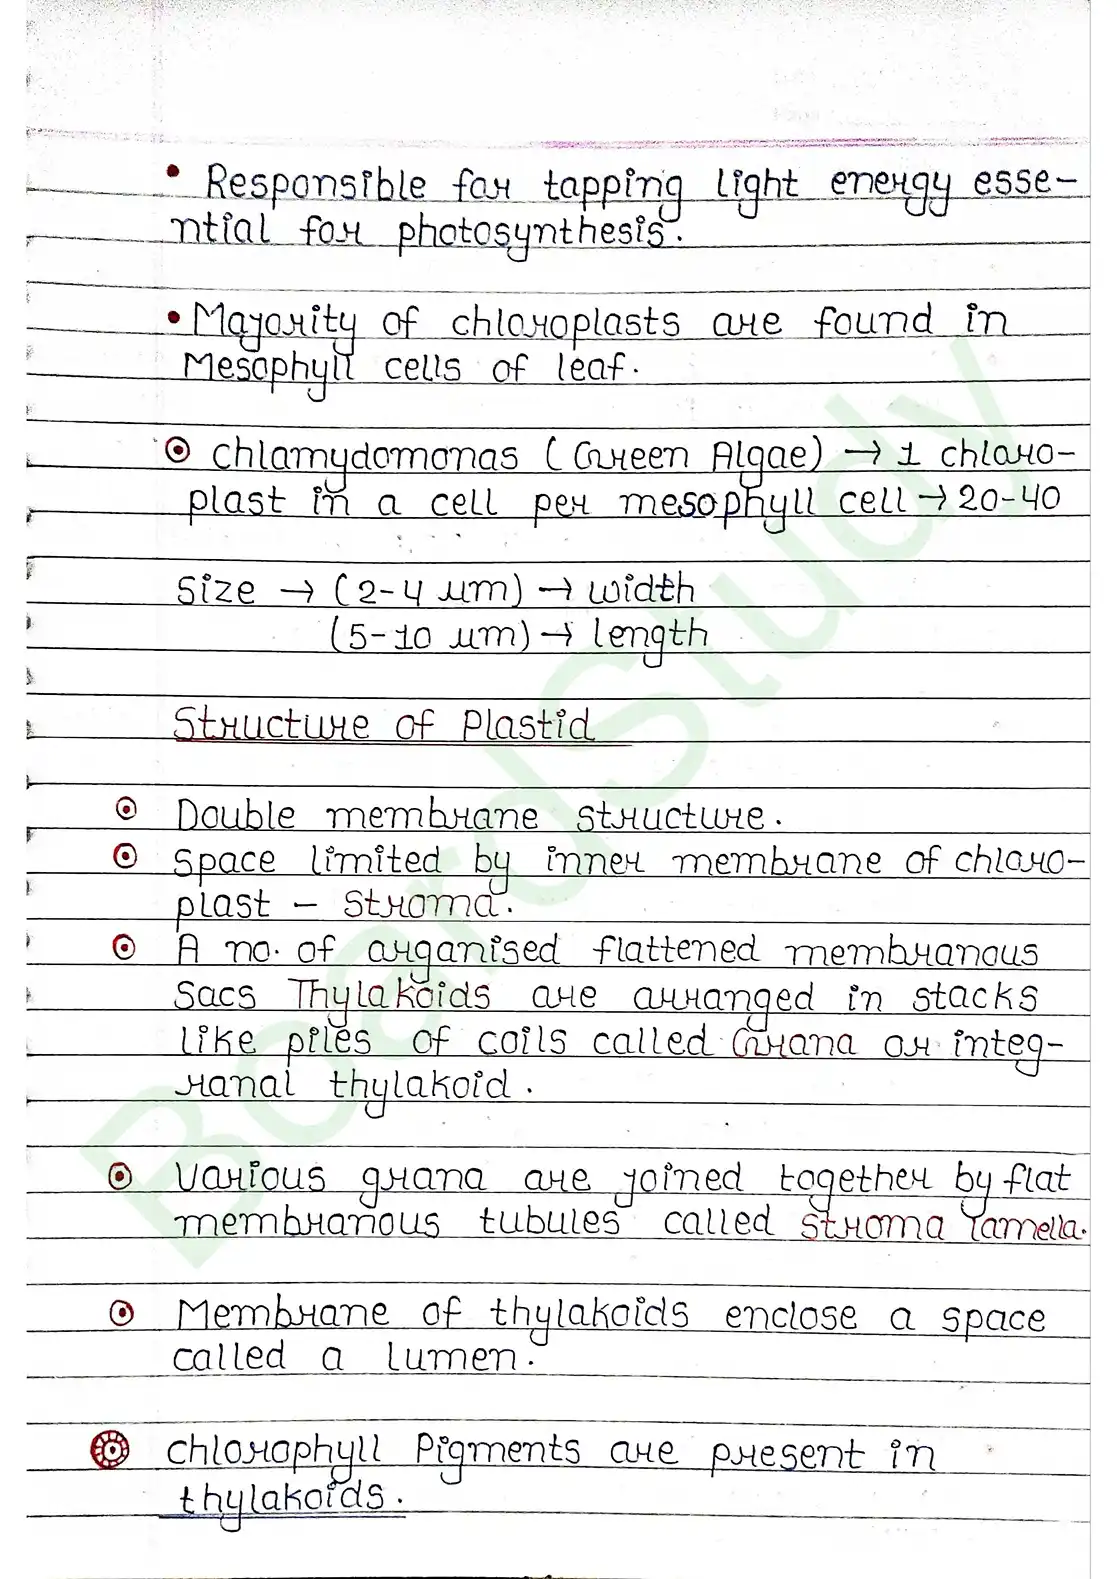 • Responsible for tapping light energy esse-
ntial for photosynthesis.
• Majority of chloroplasts are found in
Mesophyll cells of leaf.
chlamydomonas (Green Algae) → 1 chloro-
plast in a cell per mesophyll cell → 20-40
Size → (2-4 μm) → width
(5-10 μm) → length
Structure of Plastid
Double membrane structure.
Space limited by inner membrane of chloro-
plast - Stroma.
A no. of organised flattened membranous
Sacs Thylakoids are arranged in stacks
like piles of coils called Grana or integ-
ranal thylakoid.
Various grana are joined together by flat
membranous tubules called stroma lamella.
Membrane of thylakoids enclose a space
called a lumen.
chlorophyll Pigments are present in
thylakoids.
BoardStudy